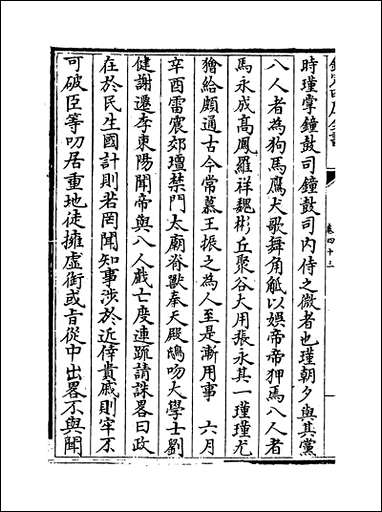 時瑾掌鐘鼓司鐘鼓司內侍之微者也瑾朝夕與其黨
八人者為狗馬鷹犬歌舞角觝以娛帝帝狎焉八人者
馬永成高鳳羅祥魏彬丘聚谷大用張永其一瑾瑾尤
獪給頗通古今常慕王振之為人至是漸用事　六月
辛酉雷震郊壇禁門太廟脊獸奉天殿鴟吻大學士劉
健謝遷李東陽聞帝與八人戲亡度連疏請誅畧曰政
在於民生國計則若罔聞知事涉於近倖貴戚則牢不
可破臣等叨居重地徒擁虛銜或旨從中出畧不與聞
欽定四庫全書
卷四十三